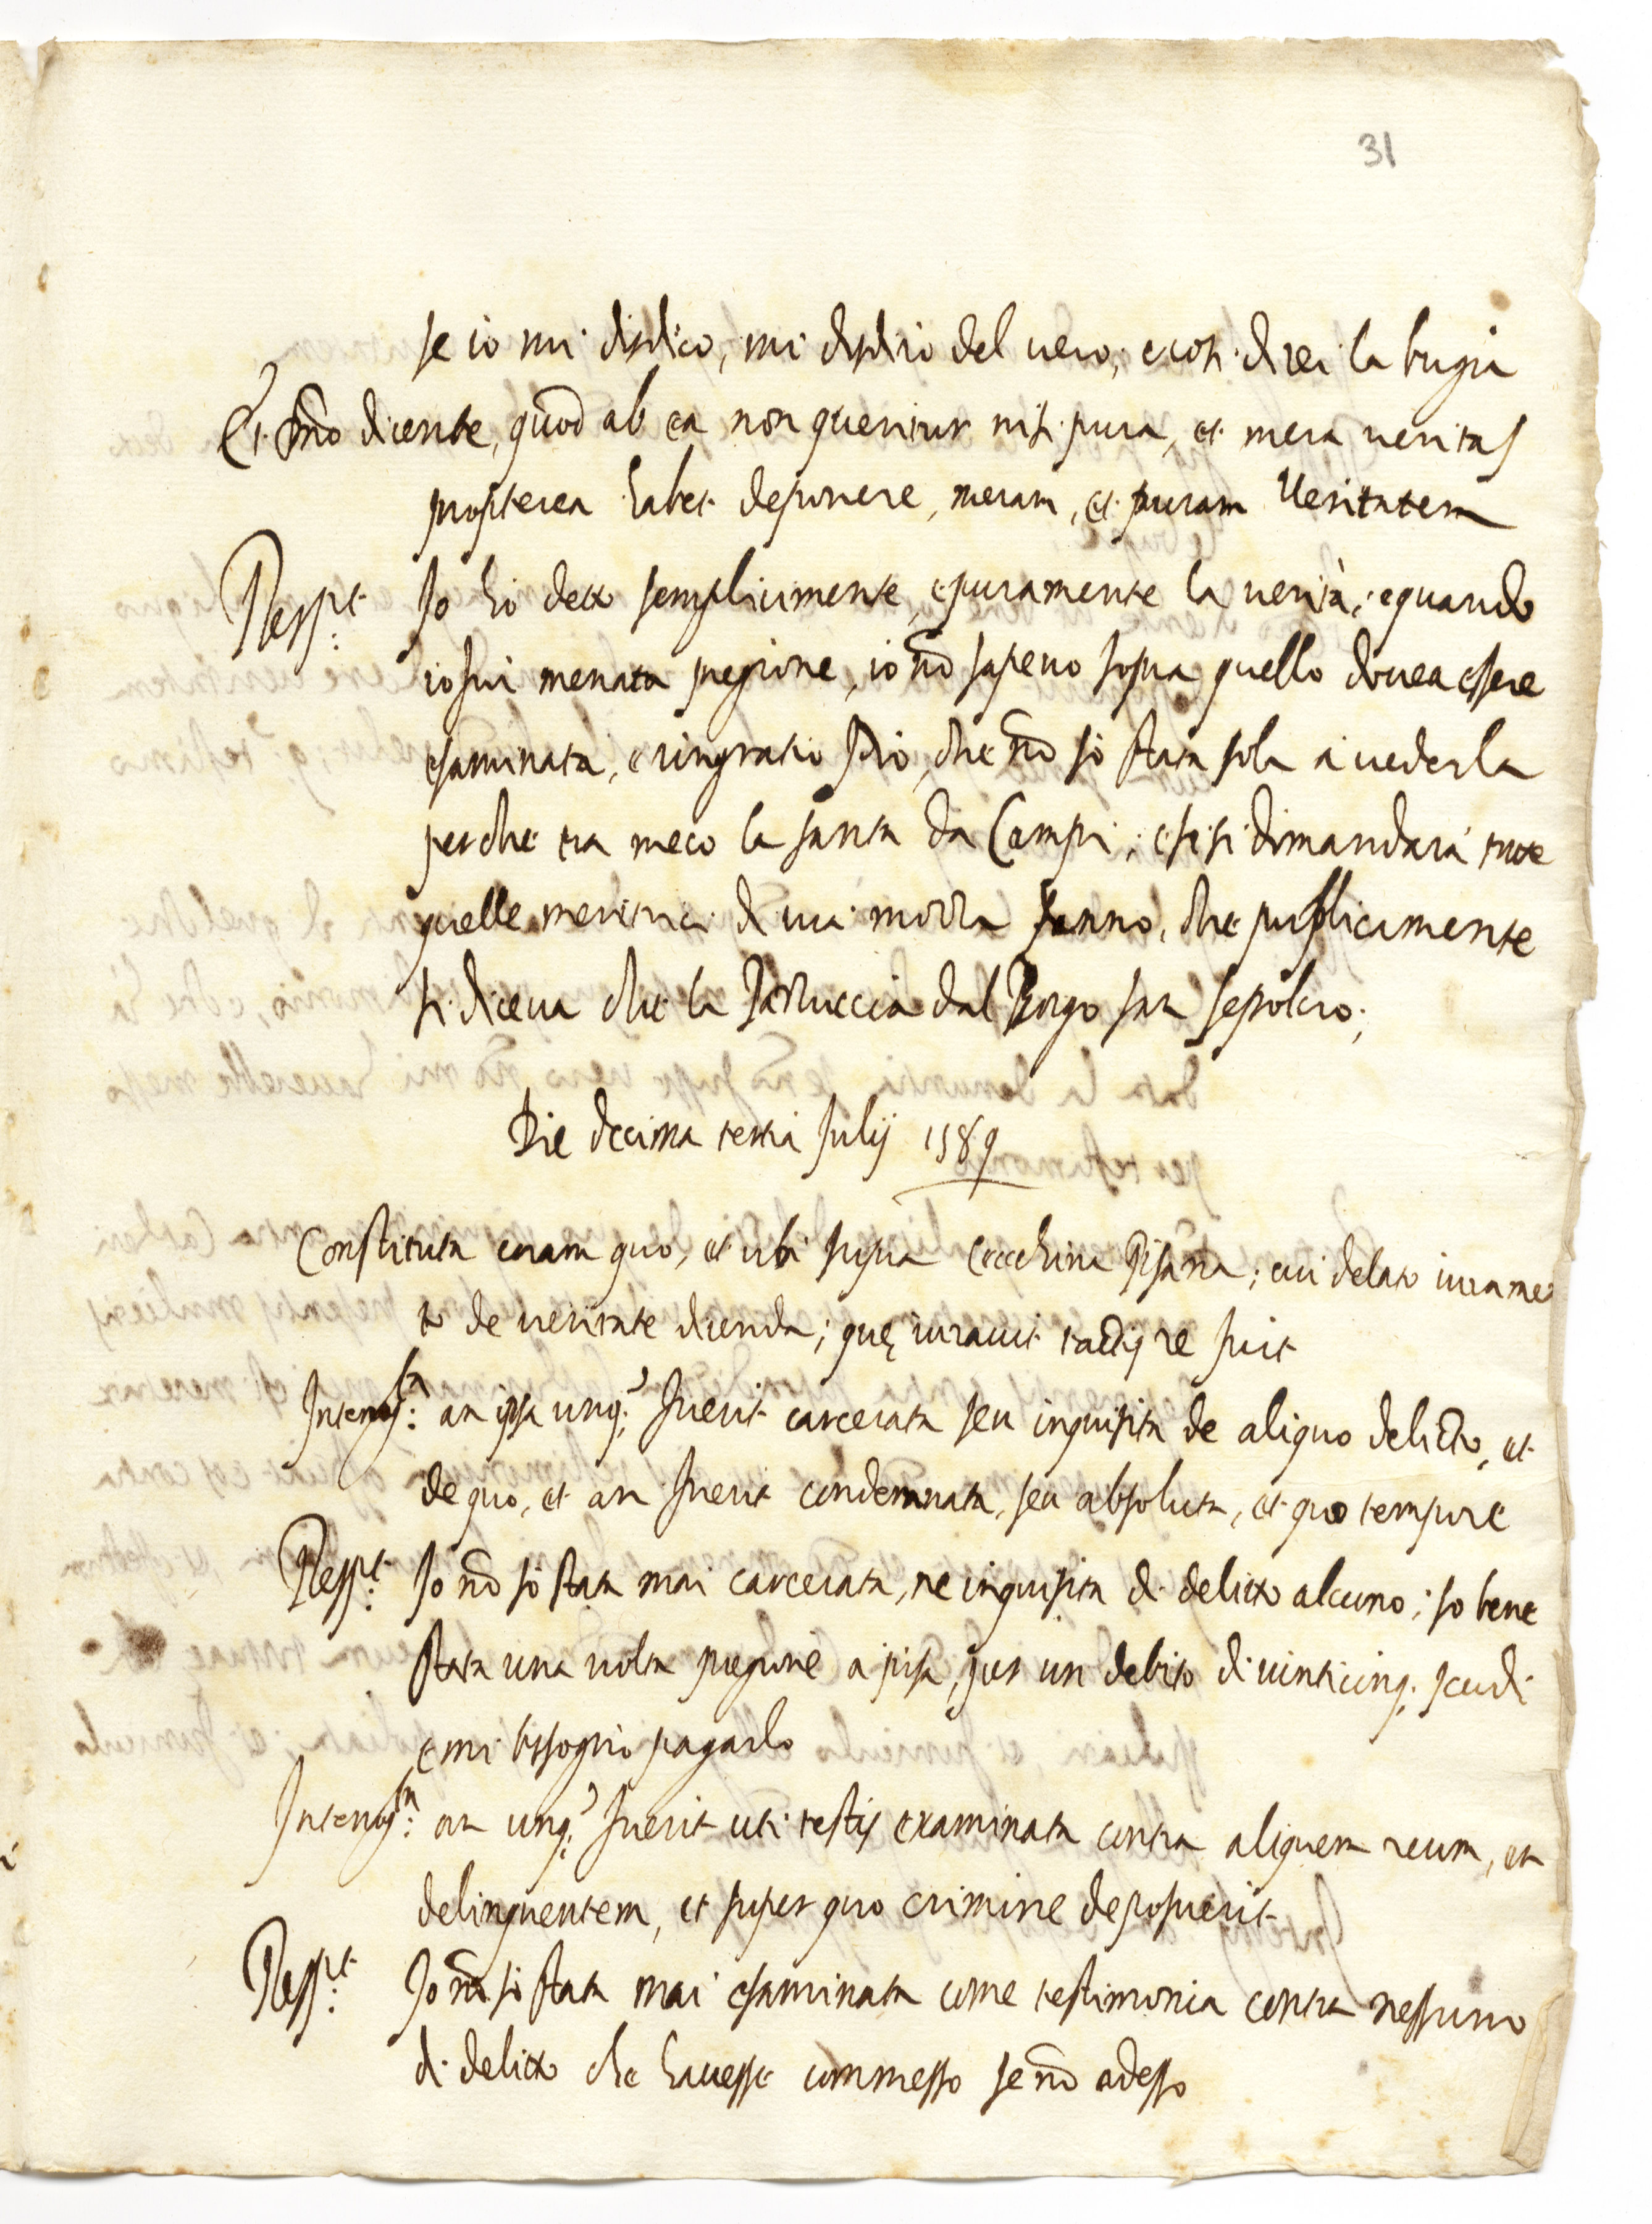 31
se io mi disdico, mi disdirò del uero, e cosi direi la bugia
Et dño dicente, quod ab ea non queritur nisi pura, et mera ueritas
propterea habet deponere, meram, et puram Ueritatem
Resp.t Io hò detto semplicimente, e puramente la uerità; e quando
io fui menata pregione, io nō sapeuo sopra quello douea essere
esaminata, e ringratio Dio, che nō sò stata sola à uederla
perche era meco la santa da Campi; e se si dimandarà tutte
quelle meritrici di uia mozza sanno, che publicamente
si diceua che la Betuccia dal Borgo san sepolcro;
Die decima tertia Julij 1589
Constituta coram quo, et ubi supra Cecchina Pisana; cui delato iurame
to de ueritate dicenda; quę iurauit tactis re fuit
Interrog.ta an ipsa unq; fuerit carcerata seu inquisita de aliquo delicto, et
de quo, et an fuerit condemnata, seu absoluta, et quo tempore
Resp.t Io nō sò stata mai carcerata, ne inquisita di delitto alcuno; so bene
stata una uolta pregione a pisa, per un debito di uinticinq; scudi
e mi bisognò pagarlo
Interrog.ta an unq; fuerit uti testis examinata contra aliquem reum, et
delinquentem, et super quo crimine deposuerit
Resp.t Io nō sò stata mai esaminata come testimonia contra nessuno
di delitto che hauesse commesso se nō adesso